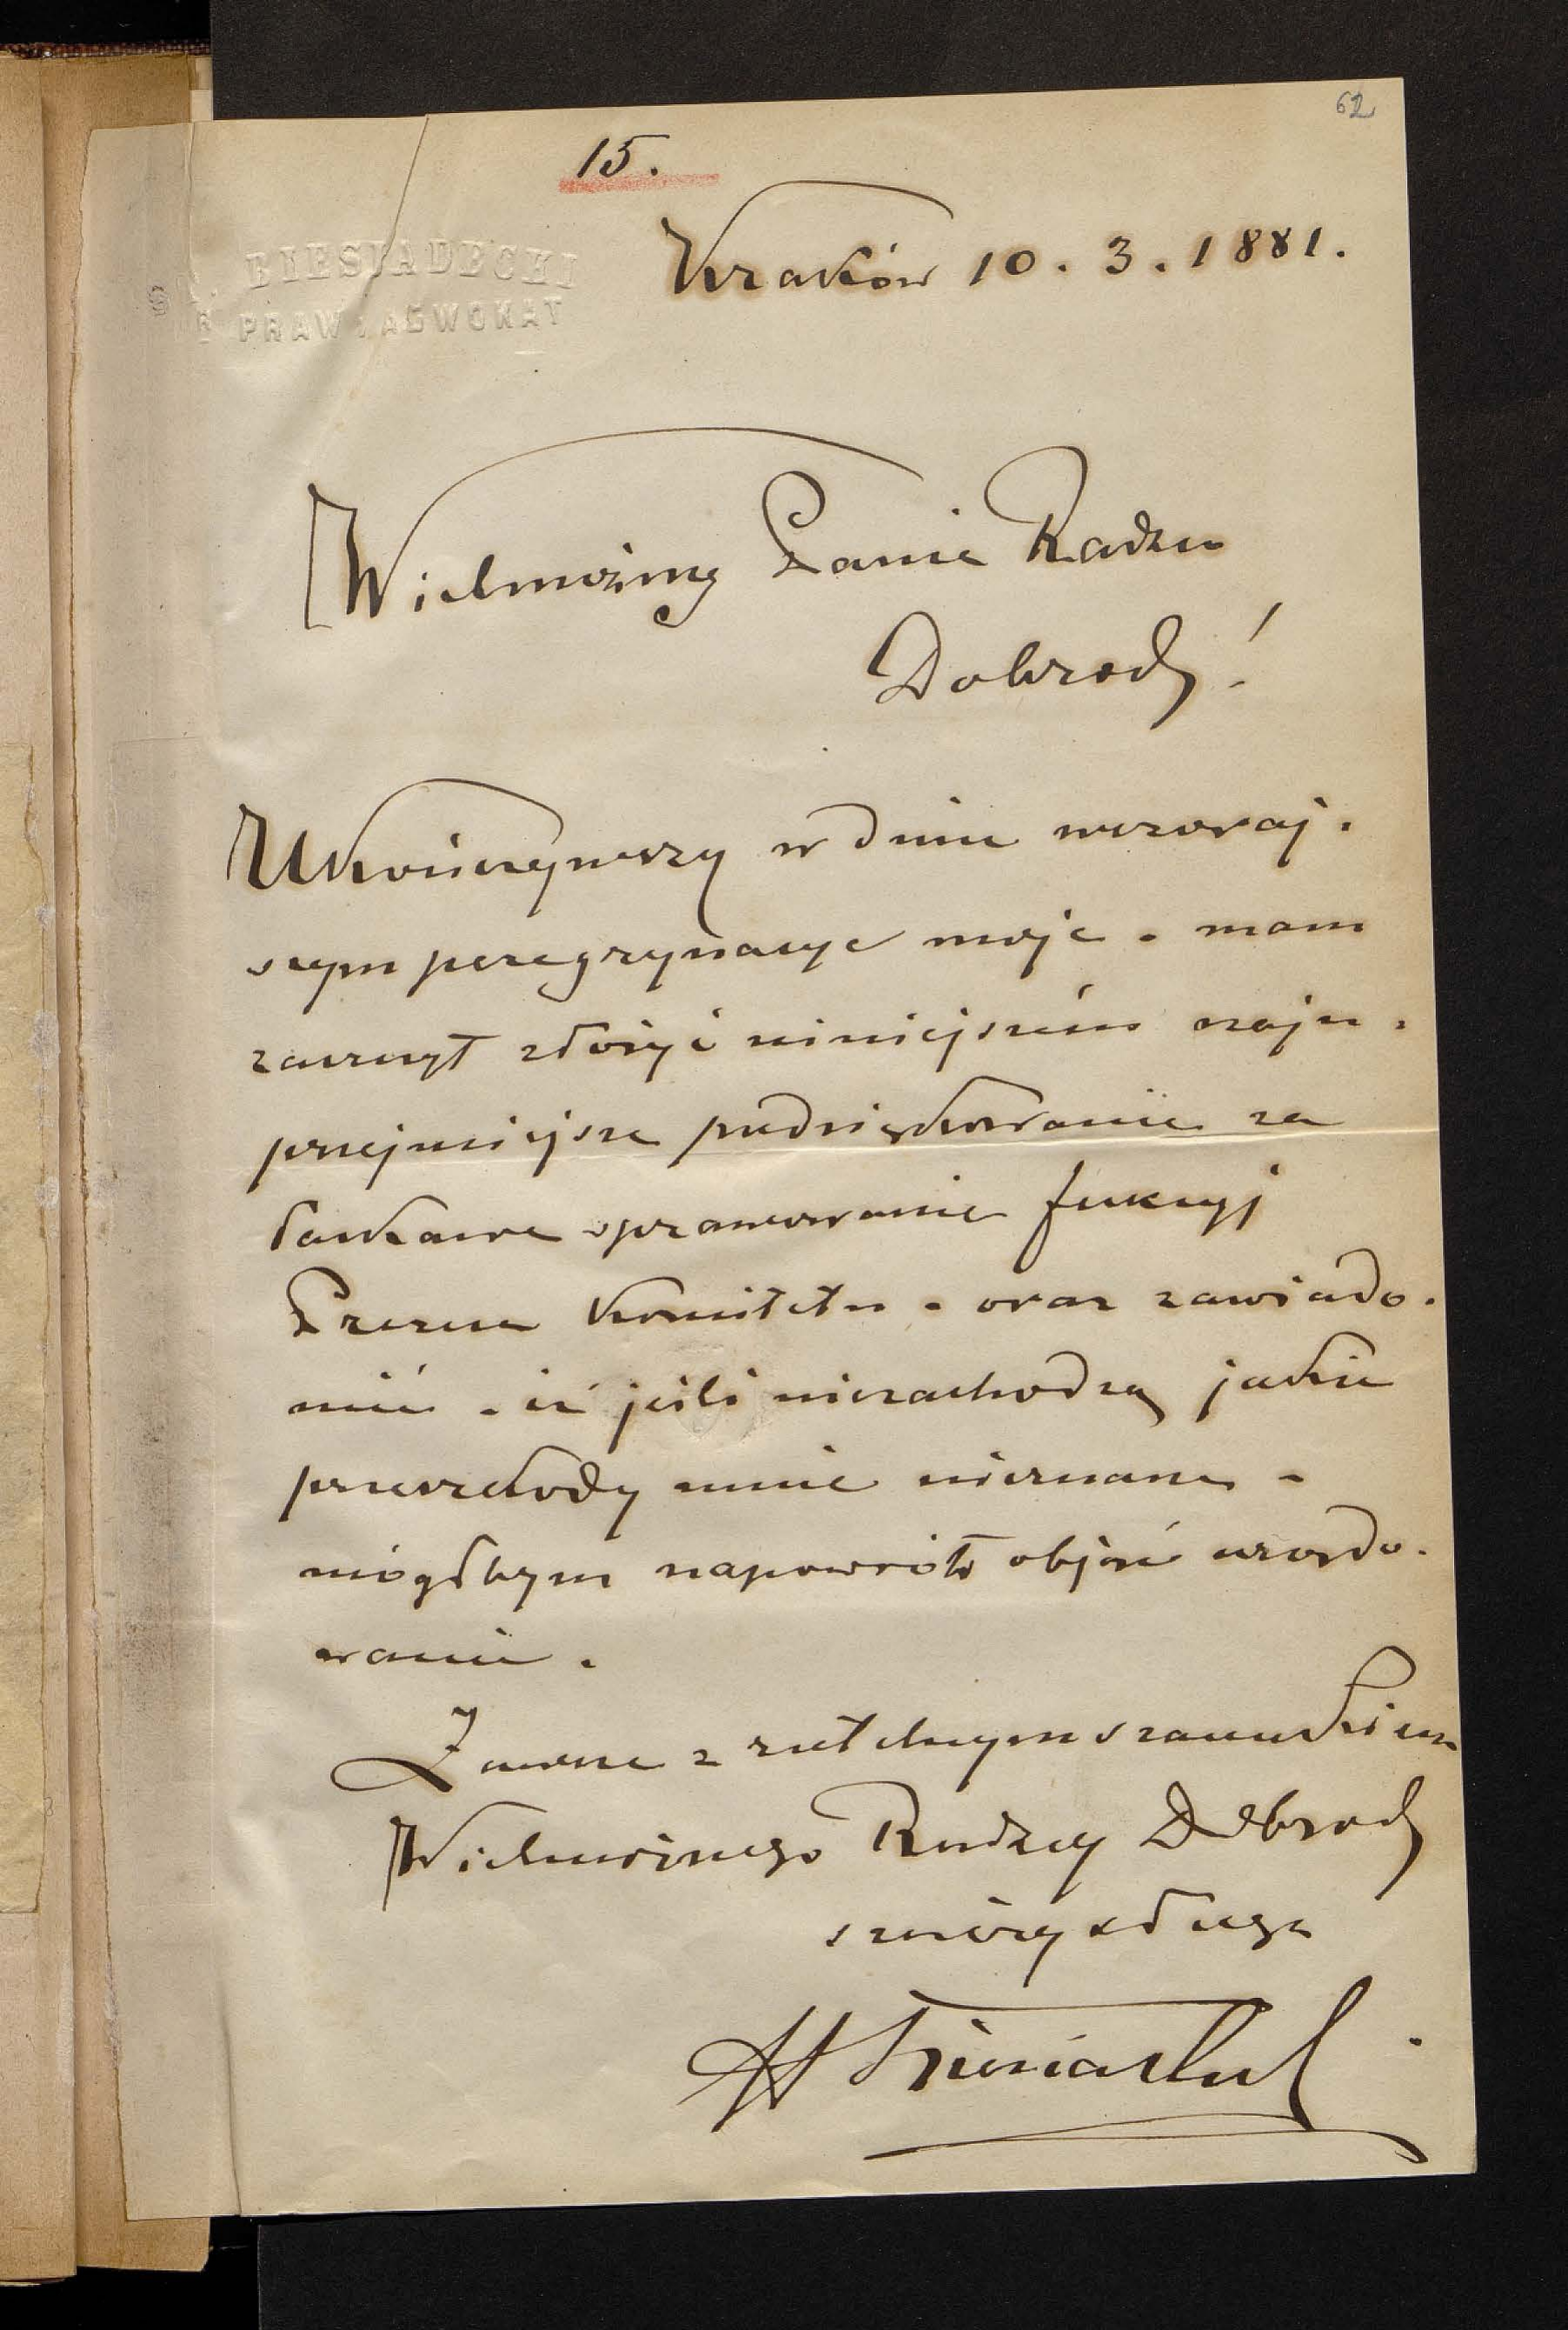 62
15.
BIESIADECKI
PRAW I ADWOKAT
Kraków 10. 3. 1881.
Wielmożny Panie Radzco
Dobrodz!
Ukończywszy w dniu wczoraj-
szym peregrynacye moje - mam
zaszczyt złożyć niniejszém naju-
przejmiejsze podziękowanie za
łaskawe sprawowanie funkcyj
Prezesa Komitetu - oraz zawiado-
mić - iż jeśli niezachodzą jakie
przeszkody mnie nieznane -
mógłbym napowrót objąć urzędo-
wanie.
Zawsze z rzetelnym szacunkiem
Wielmożnego Radzcy Dobrodz
szczéry sługa